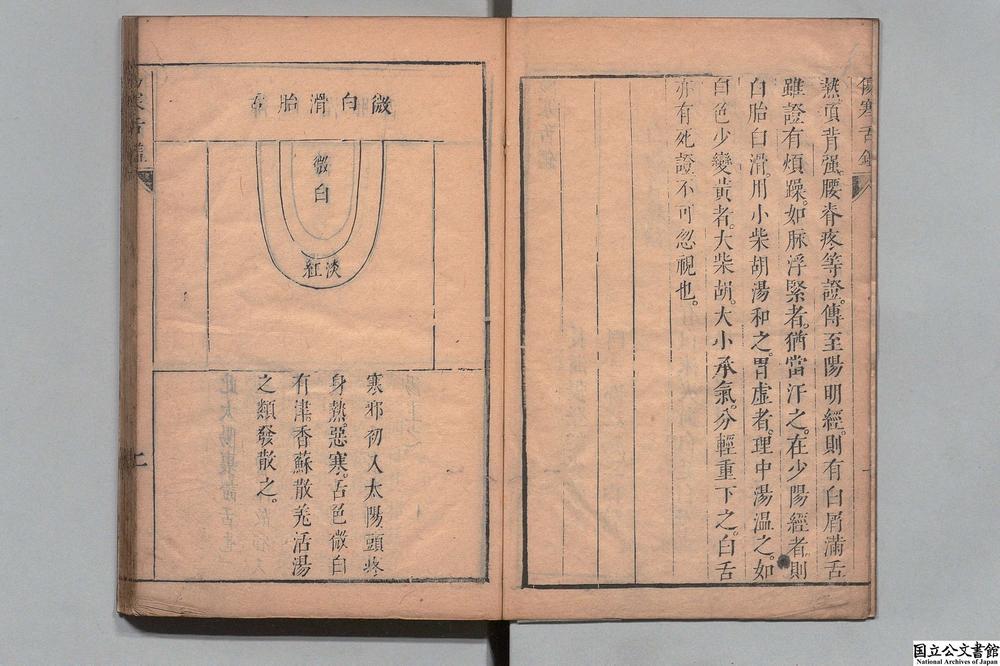 傷寒舌鑑
熱頭背强。腰脊疼等證。傳至陽明經。則有白屑滿舌
雖證有煩躁。如脉浮緊者。猶當汗之。在少陽經者。則
白胎白滑。用小柴胡湯和之。胃虛者。理中湯温之。如
白色少變黃者。大柴胡。大小承氣。分輕重下之。白舌
亦有死證不可忽視也。
微白滑胎舌
微白
淡紅
寒邪初入太陽。頭疼
身熱。惡寒。舌色微白
有津。香蘇散羗活湯
之類發散之。
寒舌鑑
二
国立公文書館
National Archives of Japan